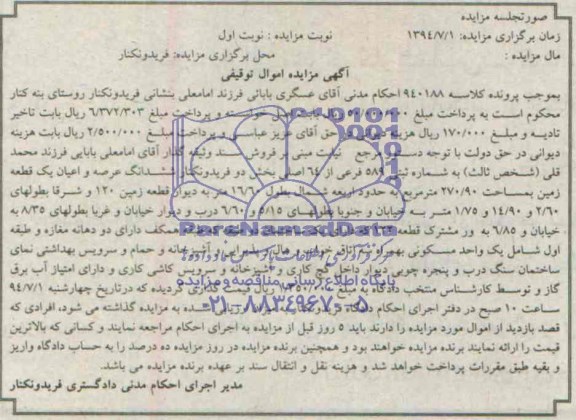 صورتجلسه مزایده
زمان برگزاری مزایده: ۱۳۹٤/۷/۱ نوبت مزایده : نوبت اول
مال مزایده : محل برگزاری مزایده: فریدونکنار
آگهی مزایده اموال توقیفی
بموجب پرونده کلاسه ۹٤۰۱۸۸ احکام مدنی آقای عسگری بابائی فرزند امامعلی بنشانی فریدونکنار روستای بنه کنار
محکوم است به پرداخت مبلغ ریال بابت اصل خواسته و پرداخت مبلغ ٦/۳۷۲/۳۰۳ ریال بابت تاخیر
تادیه و مبلغ ۱۷۰/۰۰۰ ریال هزینه در حق آقای عزیز عباسی و پرداخت مبلغ ۲/۵۰۰/۰۰۰ ریال بابت هزینه
دیوانی در حق دولت با توجه دستور مرجع نیابت مبنی بر فروش سند وثیقه گذار آقای امامعلی بابایی فرزند محمد
قلی (شخص ثالث) به شماره ثبتی ۵۸۹ فرعی از ٦٤ اصلی بخش دو فریدونکنار ششدانگ عرصه و اعیان یک قطعه
زمین بمساحت ۲۷۰/۹۰ مترمربع به حدود اربعه شمالا بطول ۱٦/٦۰ متر به دیوار قطعه زمین ۱۲۰ و شرقا بطولهای
۲/٦۰ و ۱٤/۹۰ و ۱/۷۵ متر به خیابان و جنوبا بطولهای ۵/۱۵ و ٦/٦۰ درب و دیوار خیابان و غربا بطولهای ۸/۳۵ به
خیابان و ٦/۸۵ به ور مشترک قطعه همکف دارای دو دهانه مغازه و طبقه
اول شامل یک واحد مسکونی اتاق خواب و هال و پذیرایی و آشپزخانه و حمام و سرویس بهداشتی نمای
ساختمان سنگ درب و پنجره چوبی دیوار داخل گچ کاری و آشپزخانه و سرویس کاشی کاری و دارای امتیاز آب برق
گاز و توسط کارشناس منتخب دادگاه به مبلغ ریال قیمت گذاری گردیده که درتاریخ چهارشنبه ۹٤/۷/۱
ساعت ۱۰ صبح در دفتر اجرای احکام دادگاه به مزایده گذاشته می شود، افرادی که
قصد بازدید از اموال مورد مزایده را دارند باید ۵ روز قبل از مزایده به اجرای احکام مراجعه نمایند و کسانی که بالاترین
قیمت را ارائه نمایند برنده مزایده خواهند بود و همچنین برنده مزایده در روز مزایده ده درصد را به حساب دادگاه واریز
و بقیه طبق مقررات پرداخت خواهد شد و هزینه نقل و انتقال سند بر عهده برنده مزایده می باشد.
مدیر اجرای احکام مدنی دادگستری فریدونکنار
ParsNamadData
پایگاه اطلاع رسانی مناقصه و مزایده
۰۲۱-۸۸۳٤۹٦۷۰-۵